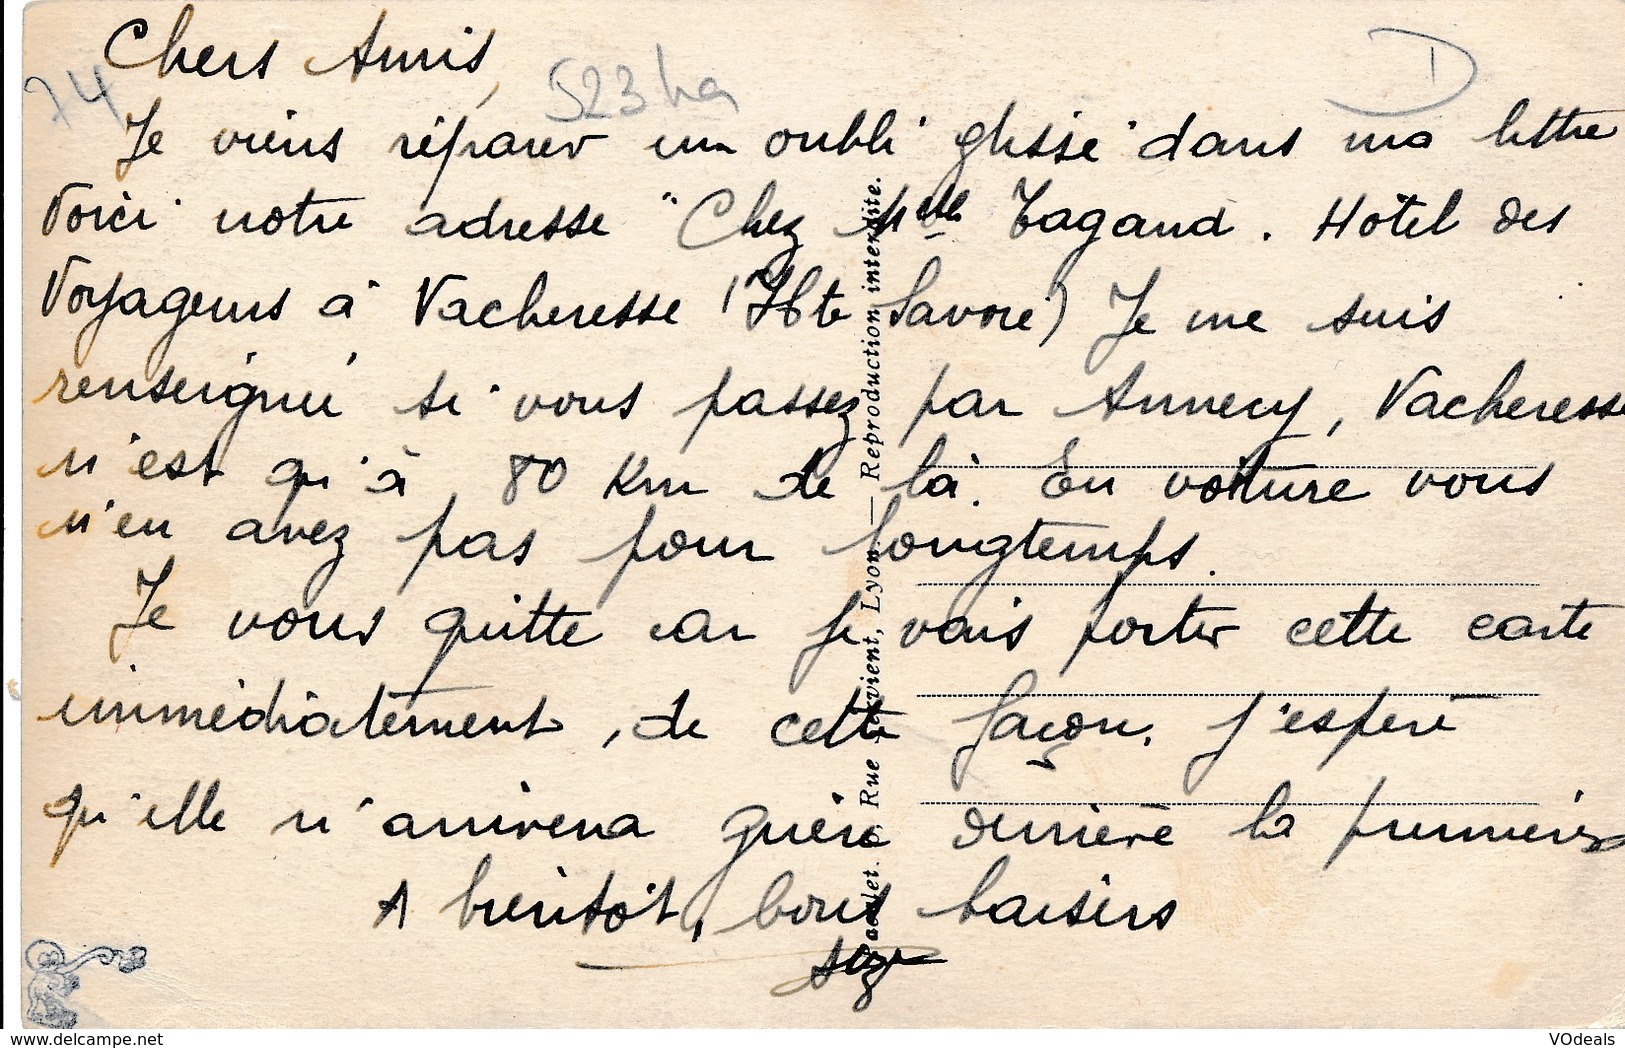 Chers Amis,
74
523 ha
D
Je viens réparer un oubli glissé dans ma lettre
Voici notre adresse "Chez Melle Tagand. Hôtel des
Voyageurs à Vacheresse (Hte Savoie) Je me suis
renseigné si vous passez par Annecy, Vacheresse
n'est qu'à 80 Km de là. En voiture vous
n'en avez pas pour longtemps.
Je vous quitte car je vais porter cette carte
immédiatement, de cette façon, j'espère
qu'elle n'arrivera guère derrière la première
A bientôt, bons baisers
Rue Bienvient, Lyon. — Reproduction interdite.
www.delcampe.net
VOdeals